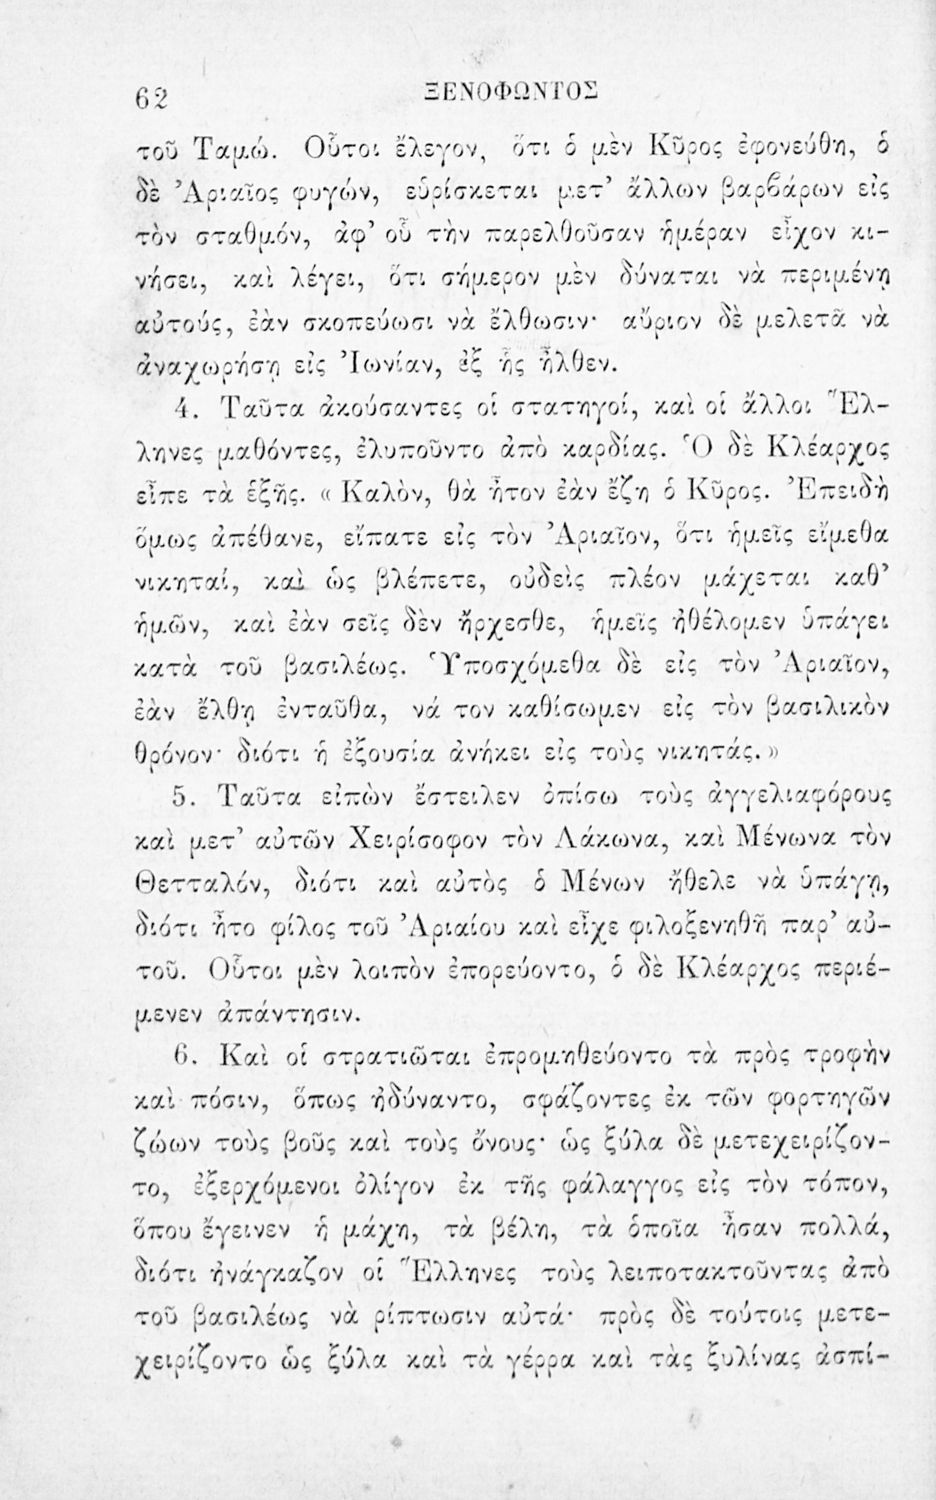 62 ΞΕΝΟΦΩΝΤΟΣ
τοῦ Ταμώ. Οὗτοι ἔλεγον, ὅτι ὁ μὲν Κῦρος ἐφονεύθη, ὁ
δὲ Ἀριαῖος φυγών, εὑρίσκεται μετ’ ἄλλων βαρβάρων εἰς
τὸν σταθμόν, ἀφ’ οὗ τὴν παρελθοῦσαν ἡμέραν εἶχον κι-
νήσει, καὶ λέγει, ὅτι σήμερον μὲν δύναται νὰ περιμένῃ
αὐτούς, ἐὰν σκοπεύωσι νὰ ἔλθωσιν· αὔριον δὲ μελετᾷ νὰ
ἀναχωρήσῃ εἰς Ἰωνίαν, ἐξ ἧς ἦλθεν.
4. Ταῦτα ἀκούσαντες οἱ στατηγοί, καὶ οἱ ἄλλοι Ἕλ-
ληνες μαθόντες, ἐλυποῦντο ἀπὸ καρδίας. Ὁ δὲ Κλέαρχος
εἶπε τὰ ἑξῆς. «Καλὸν, θὰ ἦτον ἐὰν ἔζη ὁ Κῦρος. Ἐπειδὴ
ὅμως ἀπέθανε, εἴπατε εἰς τὸν Ἀριαῖον, ὅτι ἡμεῖς εἴμεθα
νικηταί, καὶ ὡς βλέπετε, οὐδεὶς πλέον μάχεται καθ’
ἡμῶν, καὶ ἐὰν σεῖς δὲν ἤρχεσθε, ἡμεῖς ἠθέλομεν ὑπάγει
κατὰ τοῦ βασιλέως. Ὑποσχόμεθα δὲ εἰς τὸν Ἀριαῖον,
ἐὰν ἔλθῃ ἐνταῦθα, νά τον καθίσωμεν εἰς τὸν βασιλικὸν
θρόνον· διότι ἡ ἐξουσία ἀνήκει εἰς τοὺς νικητάς.»
5. Ταῦτα εἰπὼν ἔστειλεν ὀπίσω τοὺς ἀγγελιαφόρους
καὶ μετ’ αὐτῶν Χειρίσοφον τὸν Λάκωνα, καὶ Μένωνα τὸν
Θετταλόν, διότι καὶ αὐτὸς ὁ Μένων ἤθελε νὰ ὑπάγῃ,
διότι ἦτο φίλος τοῦ Ἀριαίου καὶ εἶχε φιλοξενηθῆ παρ’ αὐ-
τοῦ. Οὗτοι μὲν λοιπὸν ἐπορεύοντο, ὁ δὲ Κλέαρχος περιέ-
μενεν ἀπάντησιν.
6. Καὶ οἱ στρατιῶται ἐπρομηθεύοντο τὰ πρὸς τροφὴν
καὶ πόσιν, ὅπως ἠδύναντο, σφάζοντες ἐκ τῶν φορτηγῶν
ζώων τοὺς βοῦς καὶ τοὺς ὄνους· ὡς ξύλα δὲ μετεχειρίζον-
το, ἐξερχόμενοι ὀλίγον ἐκ τῆς φάλαγγος εἰς τὸν τόπον,
ὅπου ἔγεινεν ἡ μάχη, τὰ βέλη, τὰ ὁποῖα ἦσαν πολλά,
διότι ἠνάγκαζον οἱ Ἕλληνες τοὺς λειποτακτοῦντας ἀπὸ
τοῦ βασιλέως νὰ ρίπτωσιν αὐτά· πρὸς δὲ τούτοις μετε-
χειρίζοντο ὡς ξύλα καὶ τὰ γέρρα καὶ τὰς ξυλίνας ἀσπί-